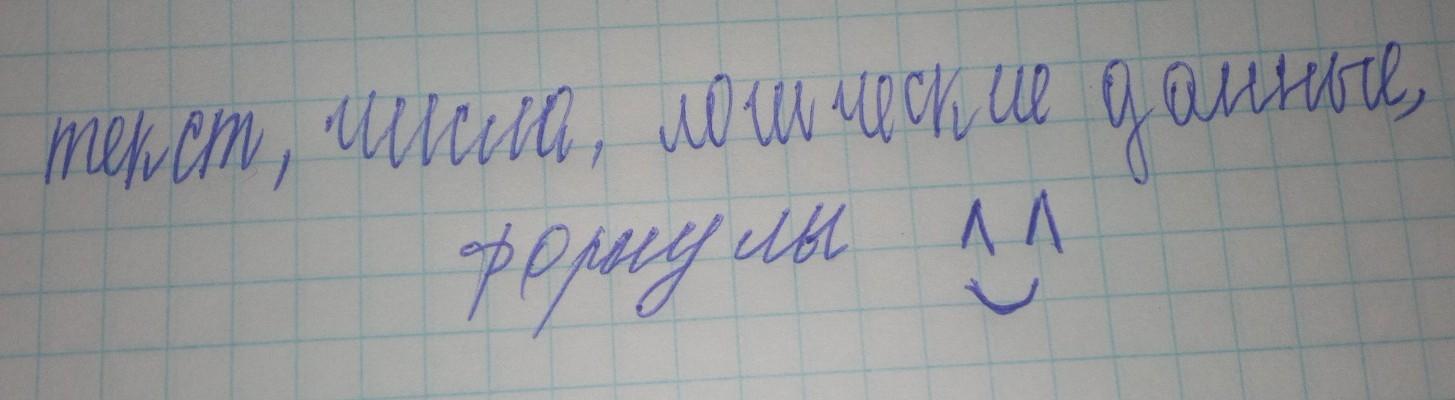 текст, числа, логические данные,
формулы ^^